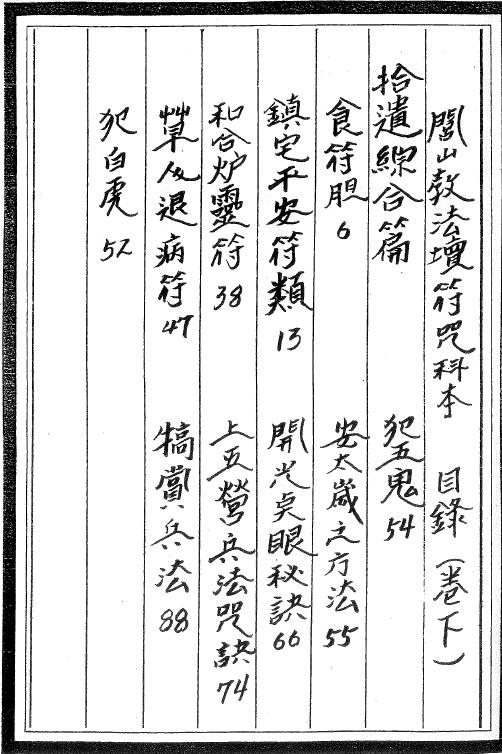 閭山教法壇符咒科本 目錄（卷下）
拾遺綜合篇
犯五鬼 54
食符胆 6
安太歲之方法 55
鎮宅平安符類 13
開光奌眼秘訣 66
和合炉靈符 38
上五營兵法咒訣 74
草人退病符 47
犒賞兵法 88
犯白虎 52